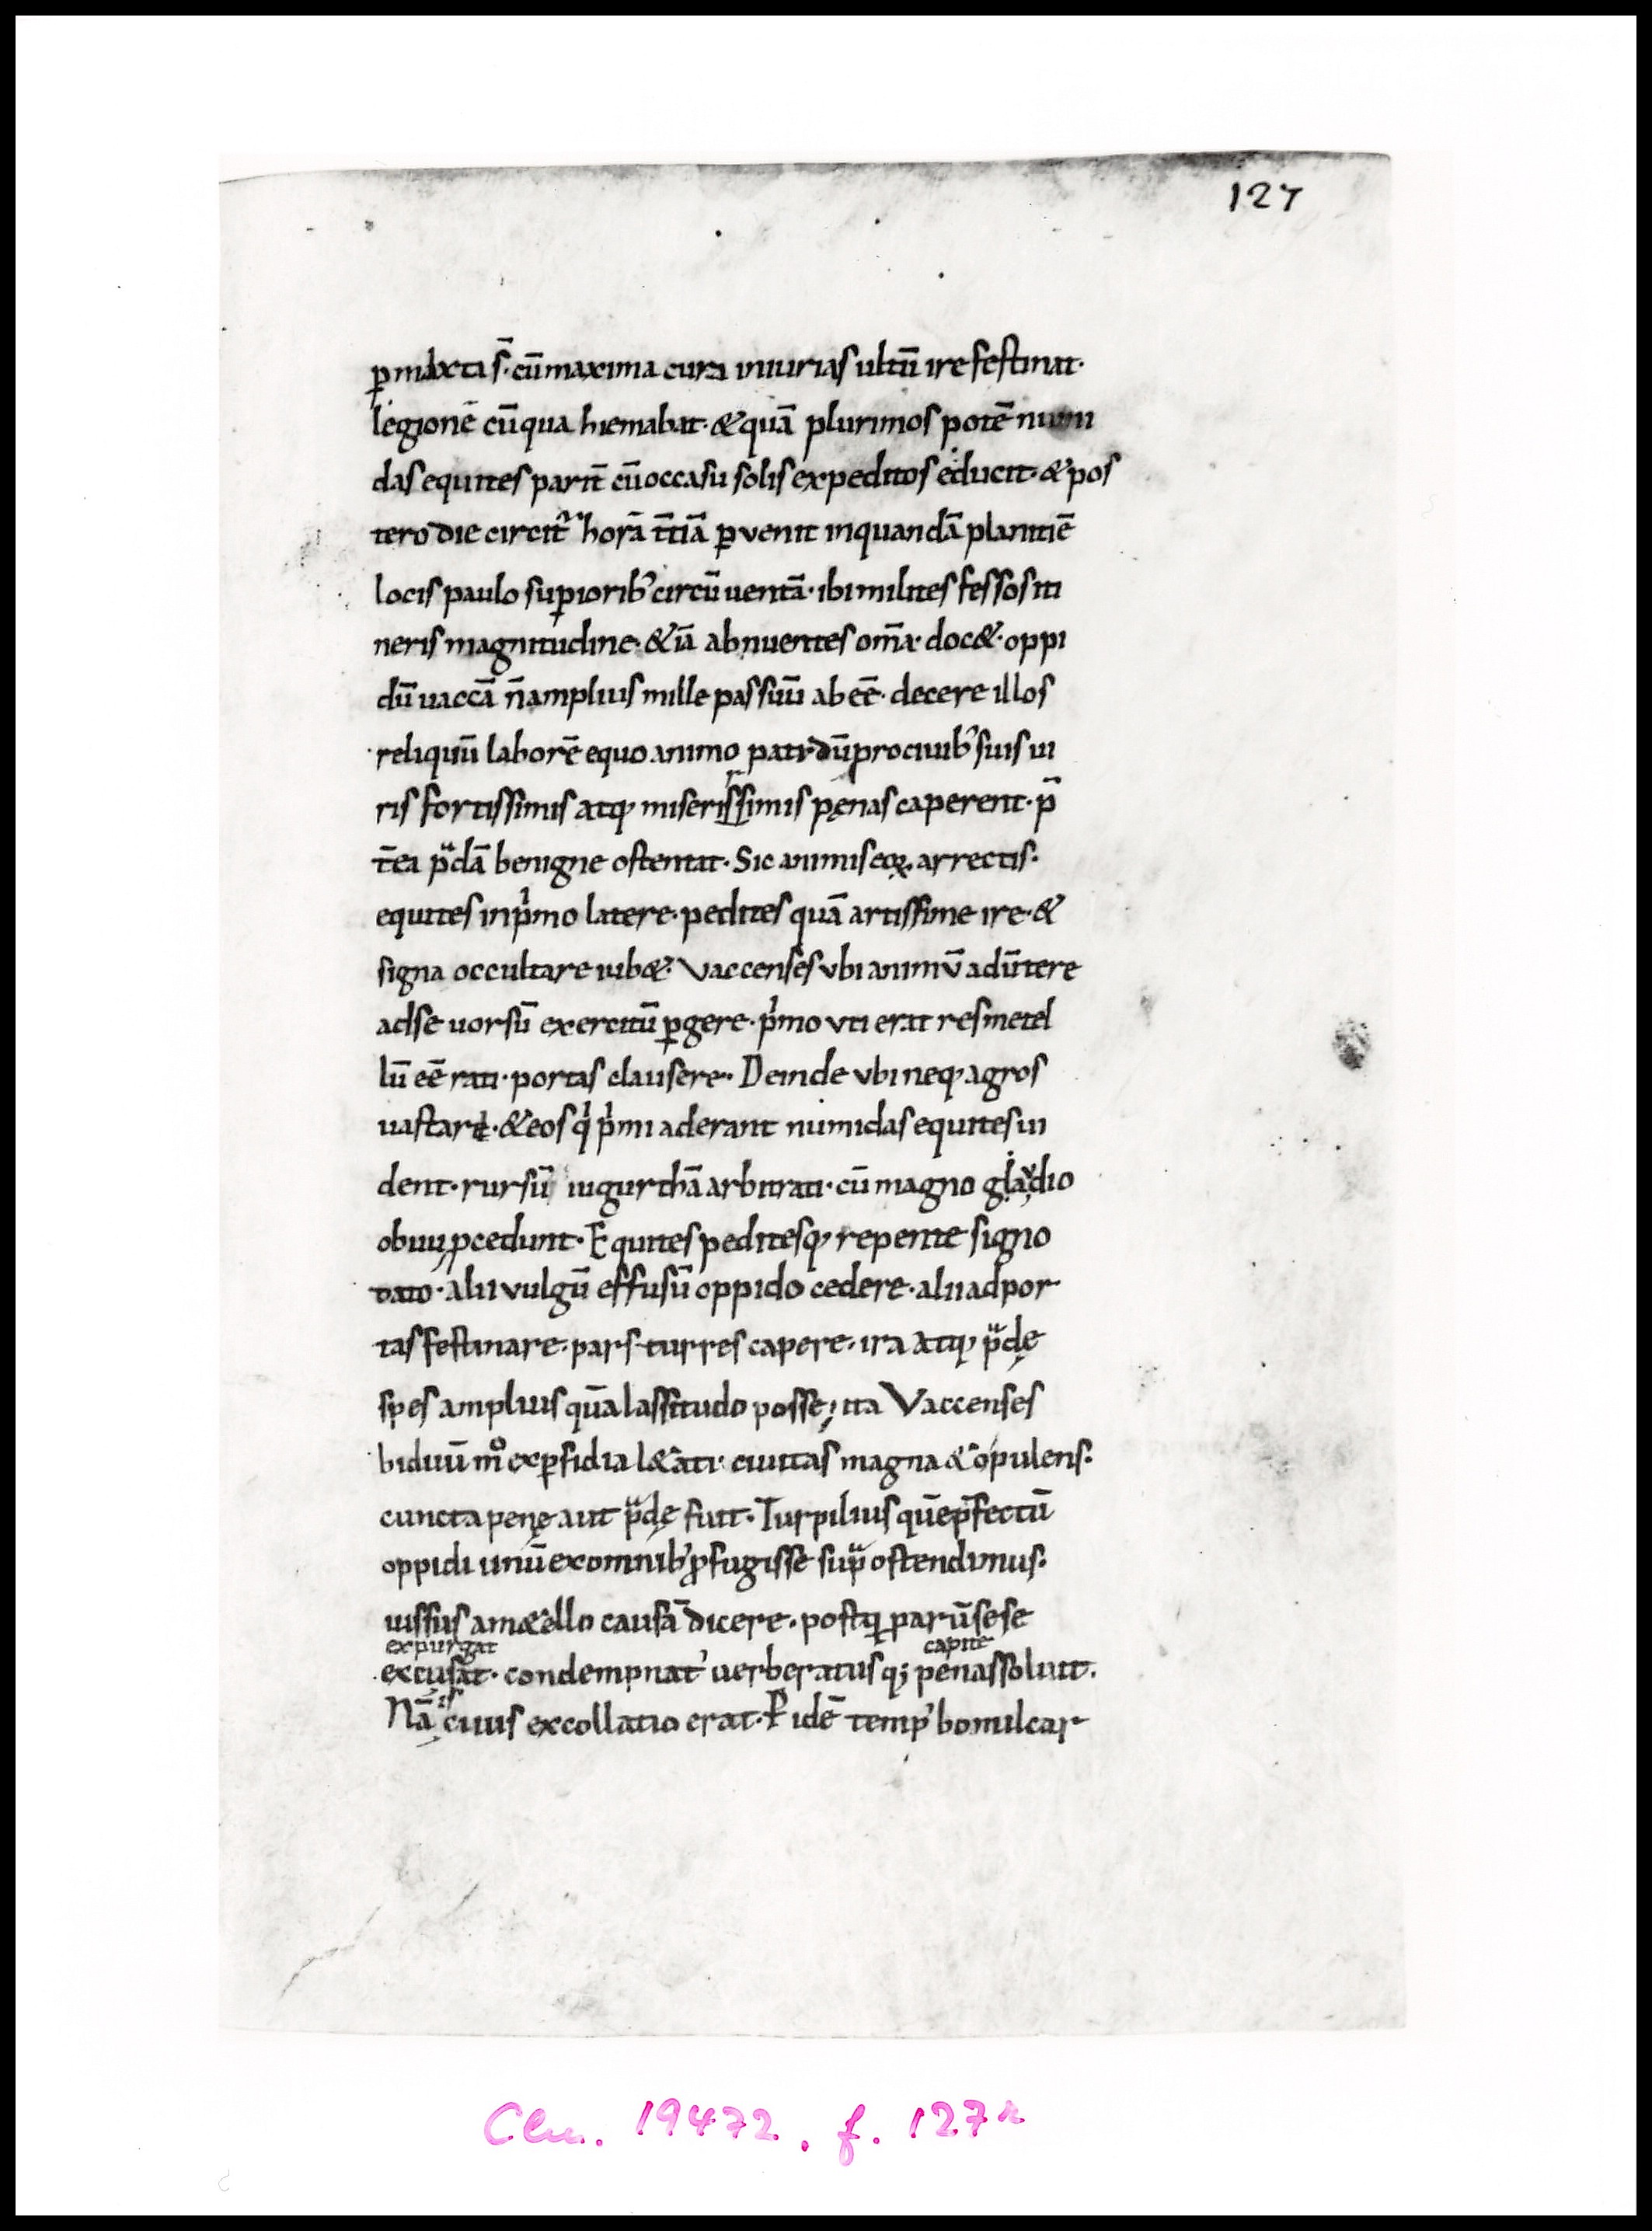 127
ꝑmixta s̄· cū maxima cura iniurias ultū ire festinat·
legionē cū qua hiemabat· & quā plurimos potē numi
das equites parit̄ cū occasu solis expeditos educit· & pos
tero die circit̄ horā t̄tiā ꝑvenit in quandā planitiē
locis paulo suꝑiorib᾽ circūuentā· ibi milites fessos iti
neris magnitudine· & iā abnuentes om̄a· doc&· oppi
dū uaccā n̄ amplius mille passuū ab eē· decere illos
reliquū laborē equo animo pati· dū pro ciuib᾽ suis ui
ris fortissimis atq; miserissimis pęnas caperent· p̄
t̄ea p̄dā benigne ostentat· Sic animis eoꝝ arrectis·
equites in pͥmo latere· pedites quā artissime ire· &
signa occultare iub&· Vaccenses vbi animū adūtere
ad se uorsū exercitū ꝑgere· pͥmo vti erat res metel
lū eē rati· portas clausere· Deinde vbi neq; agros
uastari· & eos qͥ pͥmi aderant numidas equites ui
dent· rursū iugurthā arbitrati· cū magno gladio
obuii ꝓcedunt· Equites peditesq; repente signo
dato· alii vulgū effusū oppido cedere· alii ad por
tas festinare· pars turres capere· ira atq; p̄dę
spes amplius quā lassitudo posse; ita Vaccenses
biduū mͦ ex ꝑfidia l&ati· ciuitas magna & opulens·
cuncta penę aut p̄dę fuit· Turpilius quē p̄fectū
oppidi unū ex omnib᾽ ꝓfugisse sup̄ ostendimus·
iussus a m&ello causā dicere· postꝗ parū sese
expurgat capite
excusat· condempnat᾽ uerberatusq; penas soluit·
Nā is cuius ex collatio erat· P idē temp᾽ bomilcar
Clm. 19472, f. 127r